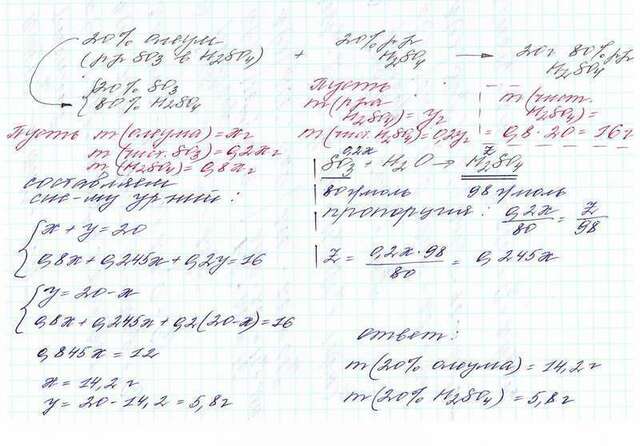 20% олеум
(р-р SO3 в H2SO4)
+
20% р-р
H2SO4
→
20г 80% р-р
H2SO4
{20% SO3
80% H2SO4
Пусть m(олеума) = xг
m(чист. SO3) = 0,2xг
m(H2SO4) = 0,8xг
Пусть
m(р-ра
H2SO4) = yг
m(чист. H2SO4) = 0,2yг
m(чист.
H2SO4) =
= 0,8·20 = 16г.
0,2x z
SO3 + H2O → H2SO4
80г/моль 98г/моль
пропорция: 0,2x/80 = z/98
z = 0,2x·98/80 = 0,245x
составляем
сис-му ур-ний:
{x + y = 20
0,8x + 0,245x + 0,2y = 16
{y = 20-x
0,8x + 0,245x + 0,2(20-x) = 16
0,845x = 12
x = 14,2г
y = 20 - 14,2 = 5,8г
ответ:
m(20% олеума) = 14,2г
m(20% H2SO4) = 5,8г